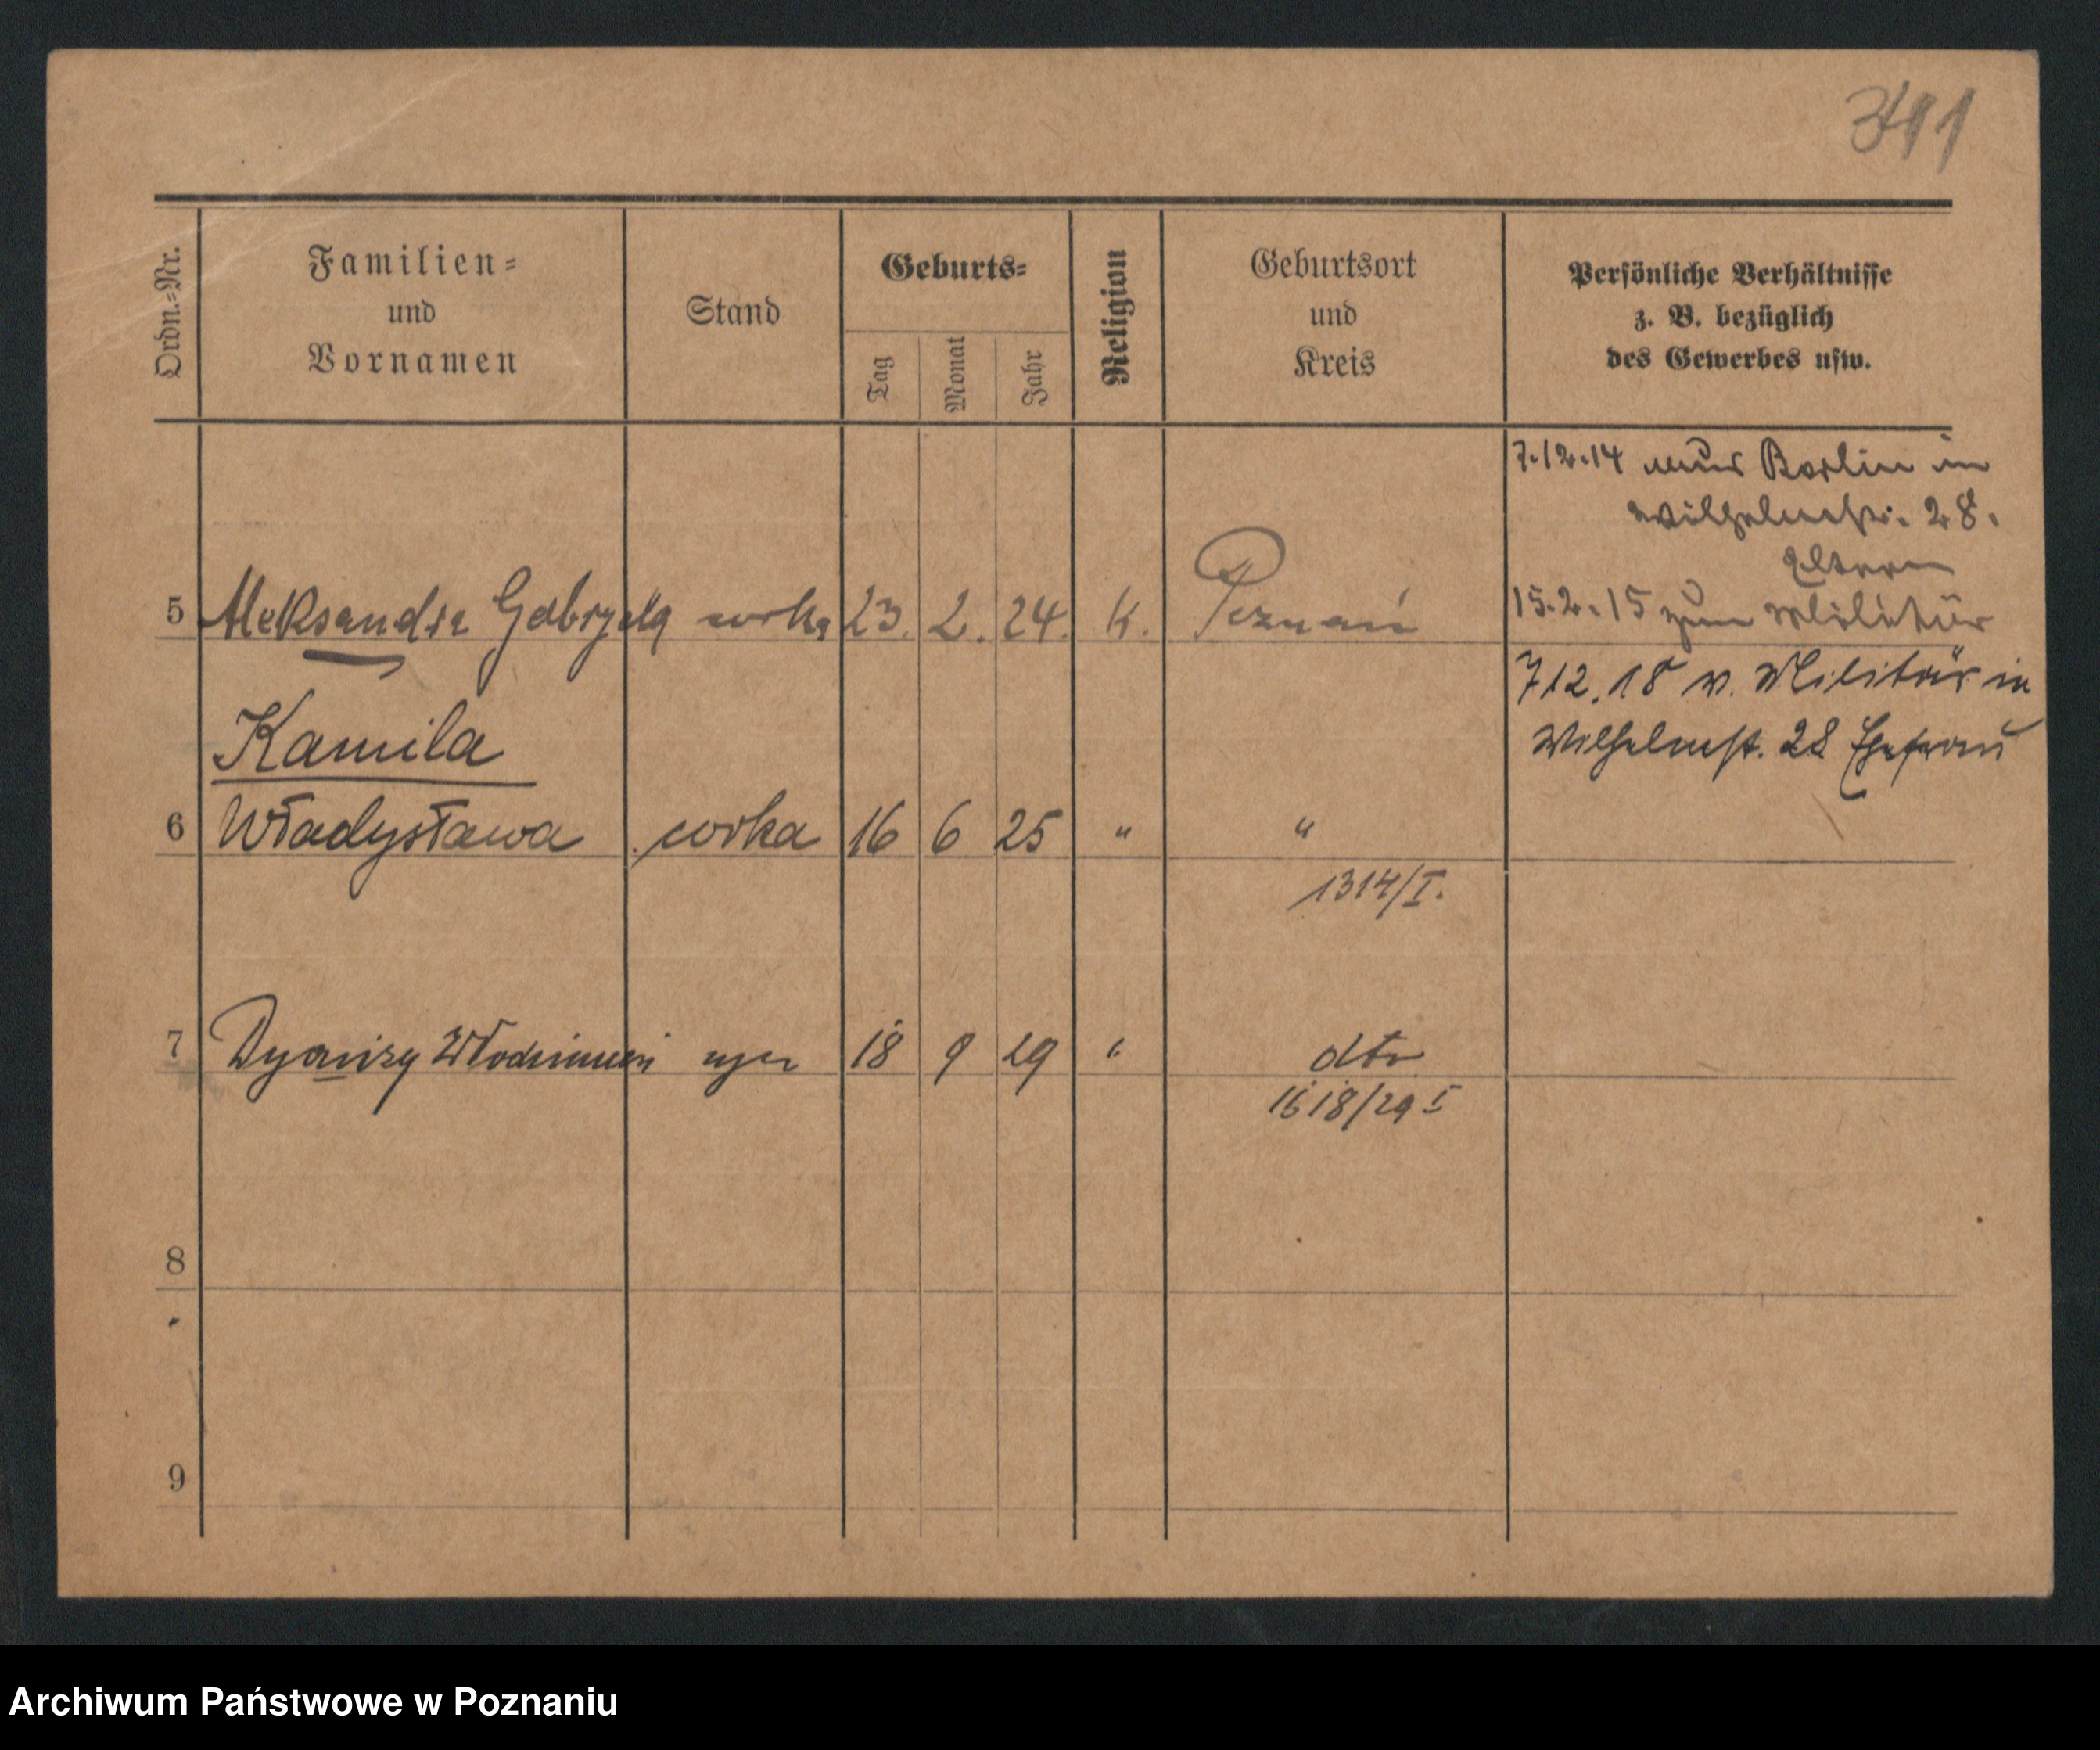 341
Ordn.-Nr.
Familien-
und
Vornamen
Stand
Geburts-
Tag
Monat
Jahr
Religion
Geburtsort
und
Kreis
Persönliche Verhältnisse
z. B. bezüglich
des Gewerbes usw.
7.12.14 Berlin in
Wilhelmstr. 28.
Eltern
15.2.15 zum Militär
5 Aleksandra Gabryela corka 23. 2. 24. K. Poznań
712.18 v. Militär in
Wilhelmst. 28 Ehefrau
Kamila
6 Władysława corka 16 6 25 " "
1314/I.
7 Dyonizy Włodzimierz syn 18 9 29 " dto
1618/29 I
8
9
Archiwum Państwowe w Poznaniu